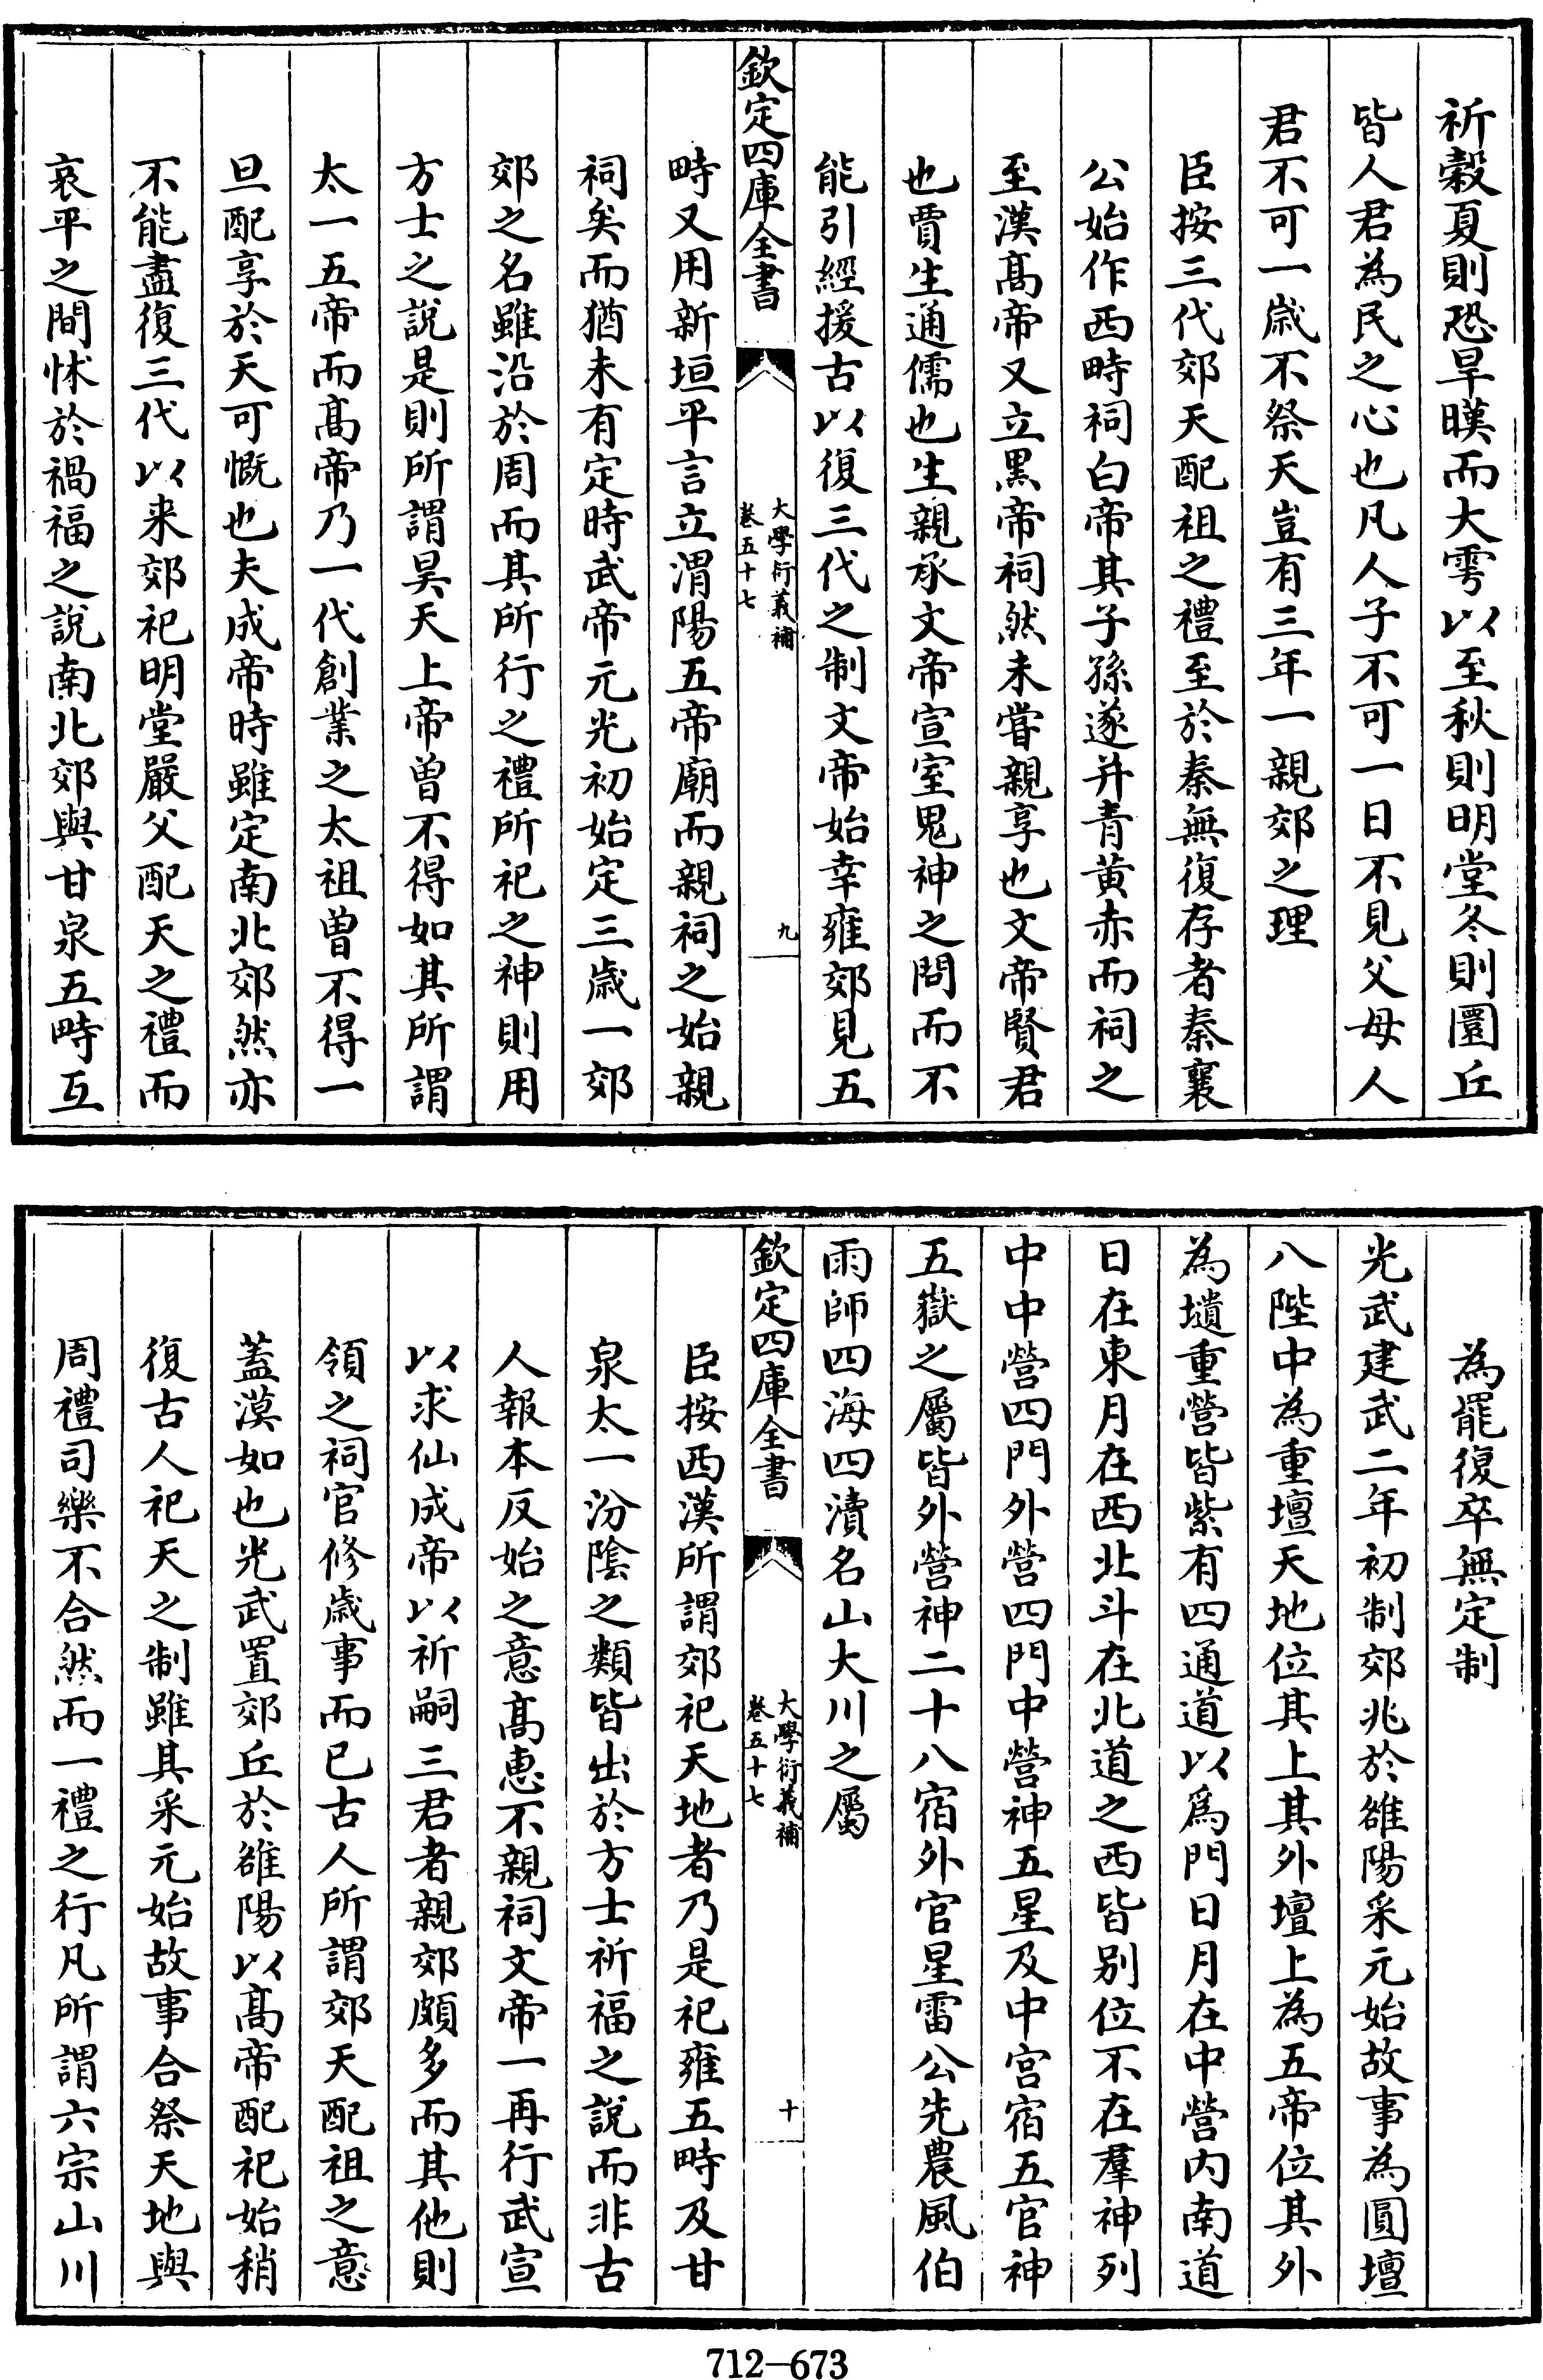 祈穀夏則恐旱暵而大雩以至秋則明堂冬則圜丘
皆人君為民之心也凡人子不可一日不見父母人
君不可一歲不祭天豈有三年一親郊之理
臣按三代郊天配祖之禮至於秦無復存者秦襄
公始作西畤祠白帝其子孫遂并青黃赤而祠之
至漢髙帝又立黑帝祠然未嘗親享也文帝賢君
也賈生通儒也生親承文帝宣室鬼神之問而不
能引經援古以復三代之制文帝始幸雍郊見五
欽定四庫全書
大學衍義補
卷五十七
九
畤又用新垣平言立渭陽五帝廟而親祠之始親
祠矣而猶未有定時武帝元光初始定三歲一郊
郊之名雖沿於周而其所行之禮所祀之神則用
方士之說是則所謂昊天上帝曽不得如其所謂
太一五帝而髙帝乃一代創業之太祖曽不得一
旦配享於天可慨也夫成帝時雖定南北郊然亦
不能盡復三代以来郊祀明堂嚴父配天之禮而
哀平之間怵於禍福之說南北郊與甘泉五畤互
為罷復卒無定制
光武建武二年初制郊兆於雒陽采元始故事為圓壇
八陛中為重壇天地位其上其外壇上為五帝位其外
為壝重營皆紫有四通道以爲門日月在中營内南道
日在東月在西北斗在北道之西皆别位不在羣神列
中中營四門外營四門中營神五星及中宫宿五官神
五嶽之屬皆外營神二十八宿外官星雷公先農風伯
雨師四海四瀆名山大川之屬
欽定四庫全書
大學衍義補
卷五十七
十
臣按西漢所謂郊祀天地者乃是祀雍五畤及甘
泉太一汾隂之類皆出於方士祈福之說而非古
人報本反始之意髙惠不親祠文帝一再行武宣
以求仙成帝以祈嗣三君者親郊頗多而其他則
領之祠官修歲事而已古人所謂郊天配祖之意
蓋漠如也光武置郊丘於雒陽以髙帝配祀始稍
復古人祀天之制雖其采元始故事合祭天地與
周禮司樂不合然而一禮之行凡所謂六宗山川
712-673